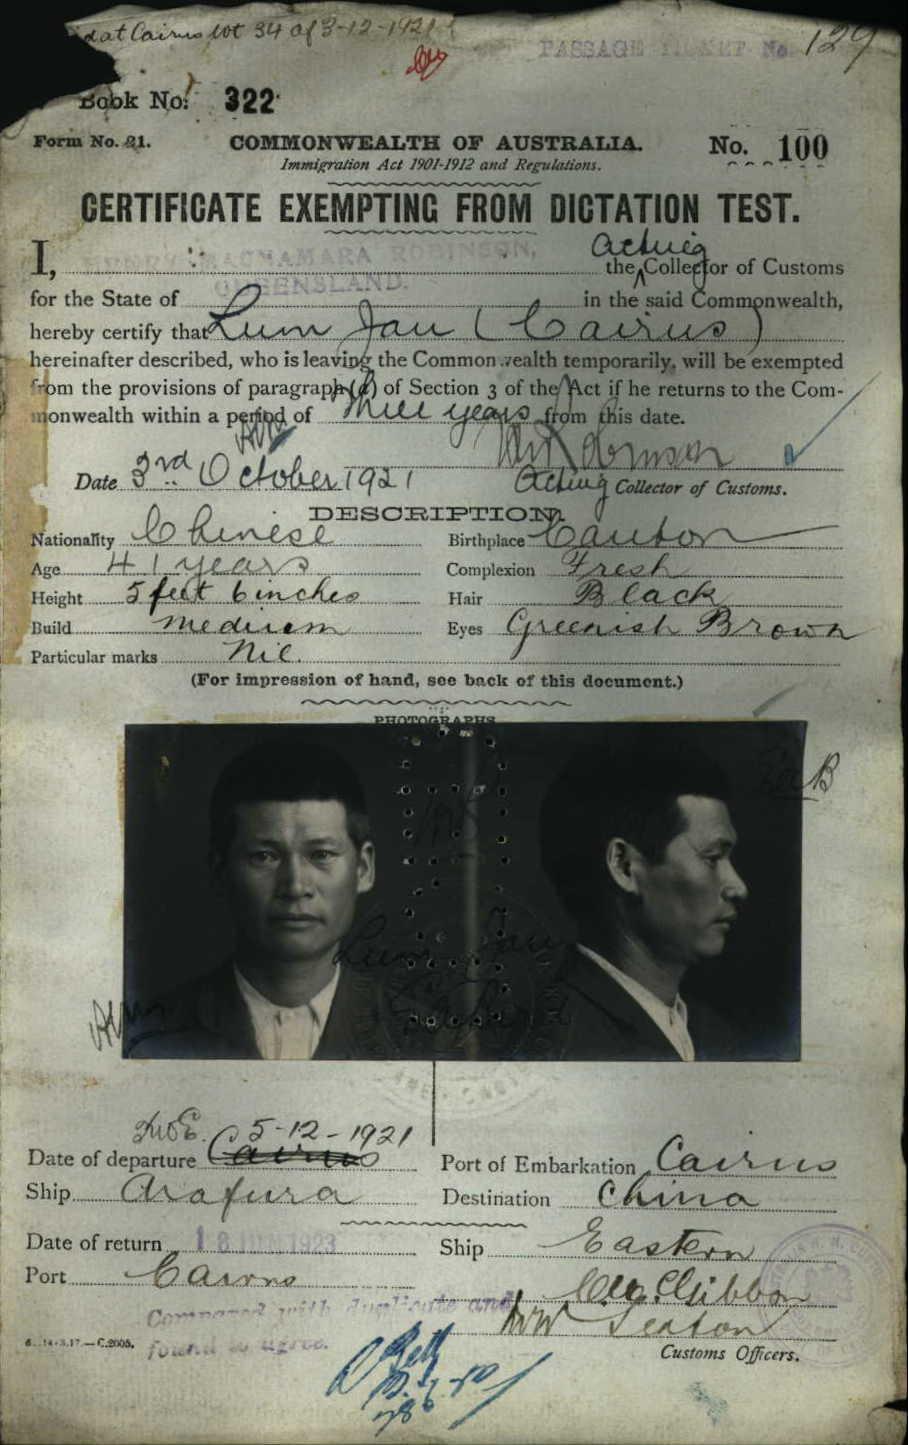 at Cairns lot 34 of 3-12-1921
PASSAGE TICKET No. 129
Book No: 322
Form No. 21. COMMONWEALTH OF AUSTRALIA. No. 100
Immigration Act 1901-1912 and Regulations.
CERTIFICATE EXEMPTING FROM DICTATION TEST.
HENRY MACNAMARA ROBINSON, Acting
I, the Collector of Customs
QUEENSLAND.
for the State of in the said Commonwealth,
hereby certify that Lum Jau (Cairns)
hereinafter described, who is leaving the Commonwealth temporarily, will be exempted
from the provisions of paragraph (a) of Section 3 of the Act if he returns to the Com-
monwealth within a period of three years from this date.
Date 3rd October 1921 Acting Collector of Customs.
DESCRIPTION.
Nationality Chinese Birthplace Canton
Age 41 years Complexion Fresh
Height 5 feet 6 inches Hair Black
Build medium Eyes Greenish Brown
Particular marks Nil.
(For impression of hand, see back of this document.)
PHOTOGRAPHS
Lum Jau
5-12-1921
Date of departure Cairns Port of Embarkation Cairns
Ship Arafura Destination China
Date of return 18 JUN 1923 Ship Eastern
Port Cairns
Compared with duplicate and
found to agree.
6.14.3.17.—C.2005. Customs Officers.